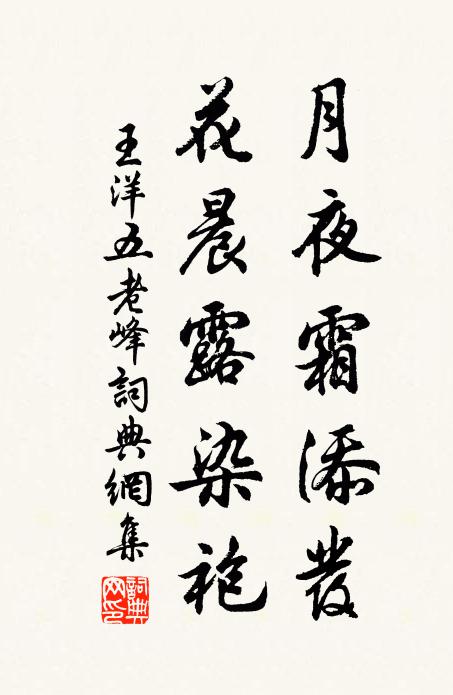 月夜霜添發
花晨露染袍
王洋五老峰詞典網集
詞典網印